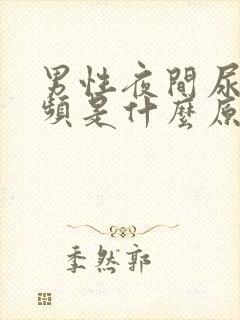 男性夜間尿
頻是什麼原
季然郭